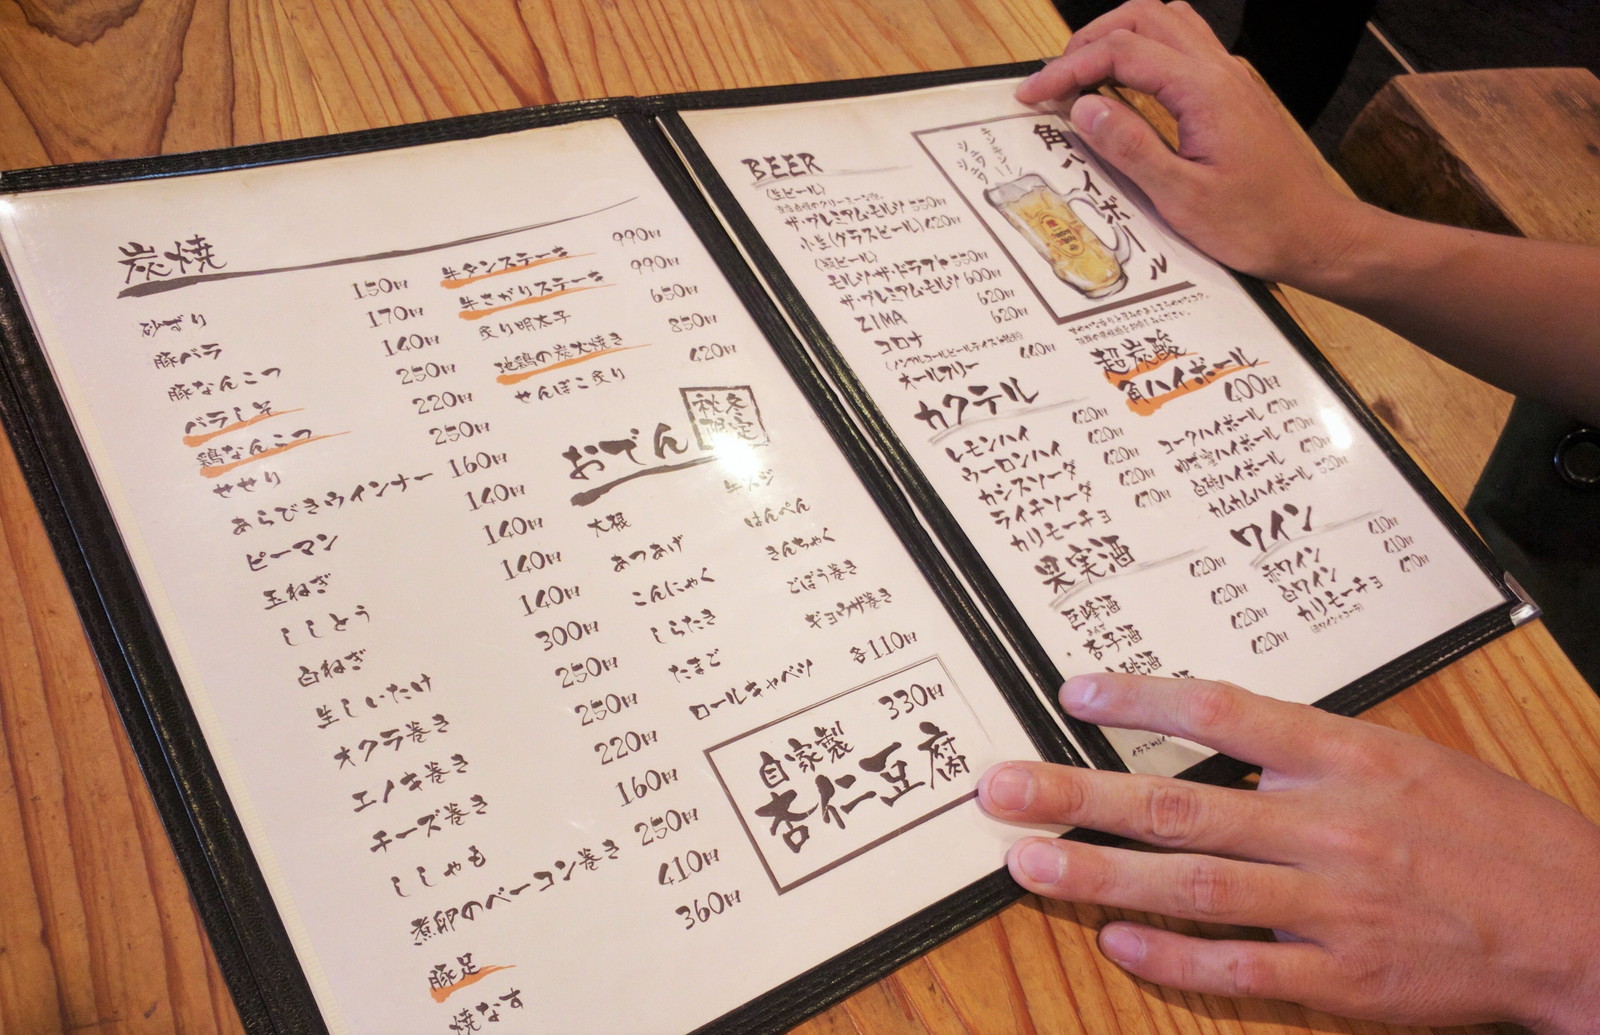 炭焼
砂ずり 150円
豚バラ 170円
豚なんこつ 140円
バラしそ 250円
鶏なんこつ 220円
せせり 250円
あらびきウインナー 160円
ピーマン 140円
玉ねぎ 140円
ししとう 140円
白ねぎ 140円
生しいたけ 300円
オクラ巻き 250円
エノキ巻き 250円
チーズ巻き 220円
ししゃも 160円
煮卵のベーコン巻き 250円
豚足 410円
焼なす 360円
牛タンステーキ 990円
牛さがりステーキ 990円
炙り明太子 650円
地鶏の炭火焼き 850円
せんぽこ炙り 420円
おでん
秋冬限定
大根
あつあげ
こんにゃく
しらたき
たまご
ロールキャベツ
牛スジ
はんぺん
きんちゃく
ごぼう巻き
ギョウザ巻き
各110円
自家製 330円
杏仁豆腐
BEER
(生ビール)
ザ・プレミアム・モルツ 550円
小生(グラスビール) 420円
(瓶ビール)
モルツ・ザ・ドラフト 550円
ザ・プレミアム・モルツ 600円
ZIMA 620円
コロナ 620円
オールフリー 440円
角ハイボール
キンキン!!
シュワシュワ
超炭酸
角ハイボール 400円
コークハイボール 470円
ゆず蜜ハイボール 470円
白桃ハイボール 470円
カムカムハイボール 520円
カクテル
レモンハイ 420円
ウーロンハイ 420円
カシスソーダ 420円
ライチソーダ 420円
カリモーチョ 470円
果実酒
巨峰酒 420円
杏子酒 420円
桃酒 420円
420円
ワイン
赤ワイン 410円
白ワイン 410円
カリモーチョ 470円
(赤ワイン+コーラ)